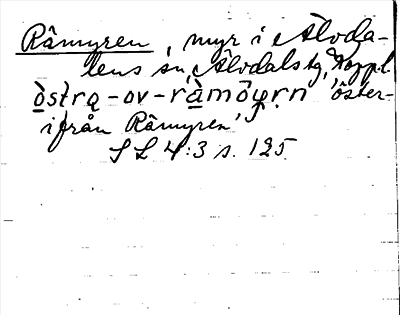 Råmyren, myr i Älvda-
lens sn, Älvdals tg, Koppl.
östrą-ov-ràmôyrn 'öster-
ifrån Råmyren'
SL 4:3 s. 125